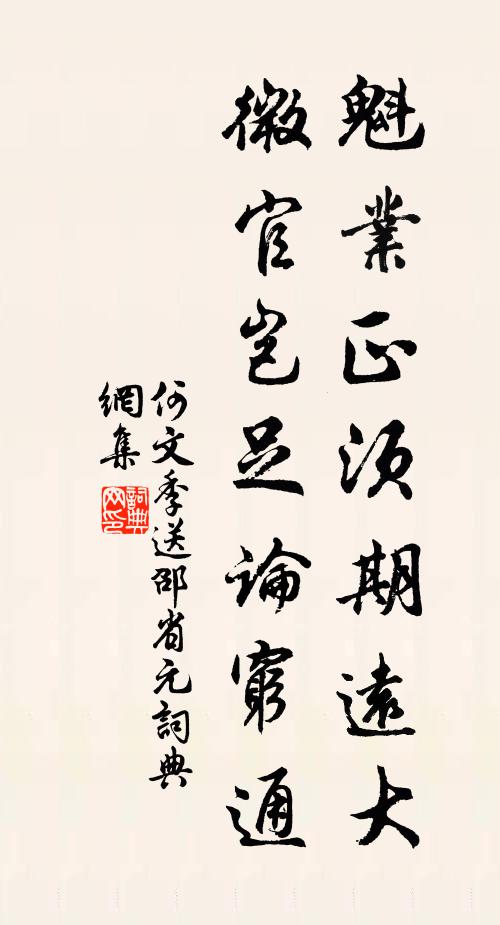 魁業正須期遠大
微官豈足論窮通
何文季送邵省元詞典
網集
詞典
网印